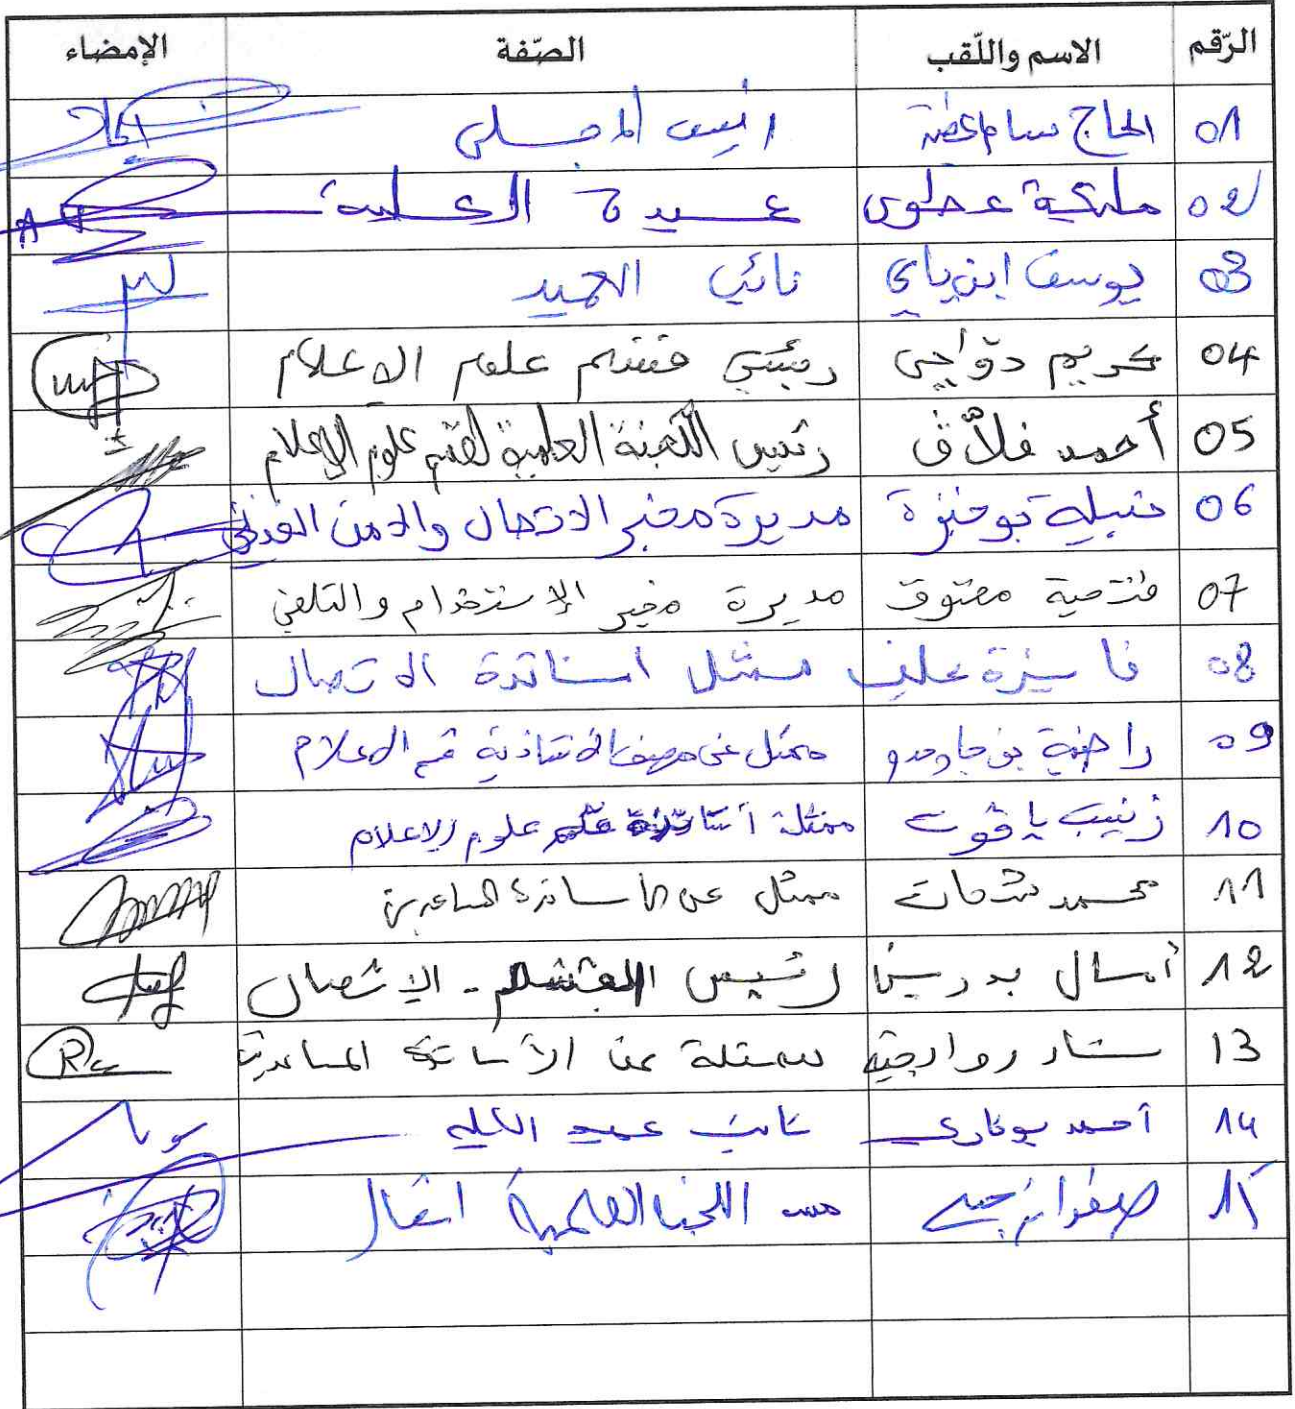 الرّقم الاسم واللّقب الصّفة الإمضاء
01 الحاج سالم عطية رئيس المجلس
02 مليكة عطوي عميدة الكلية
03 يوسف ابن باي نائب العميد
04 كريم دواجي رئيس قسم علوم الإعلام
05 أحمد فلاّق رئيس اللجنة العلمية لقسم علوم الإعلام
06 نبيلة بوخبزة مديرة مخبر الاتصال والأمن الغذائي
07 فتحية معتوق مديرة مخبر الإستخدام والتلقي
08 فايزة ممثل أساتذة الاتصال
09 راضية ممثل عن مصف الأستاذية قسم الإعلام
10 زينب ياقوت ممثلة أساتذة قسم علوم الإعلام
11 محمد ممثل عن الأساتذة المساعدين
12 أمال رئيس القسم - الإتصال
13 ممثلة عن الأساتذة المساعدين
14 أحمد بوخاري نائب عميد الكلية
15 اللجنة العلمية اتصال